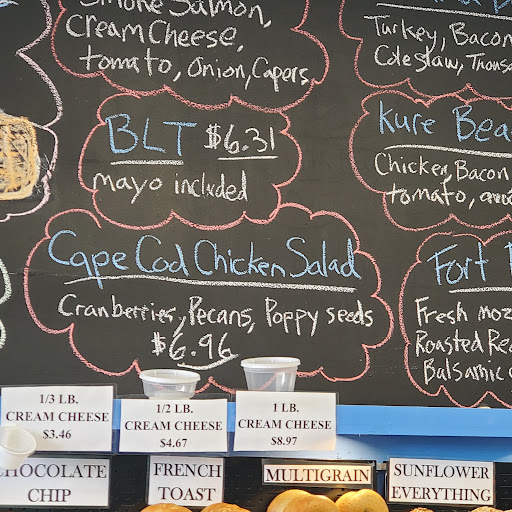 Salmon,
Cream Cheese,
tomato, Onion, Capers
Turkey, Bacon
Coleslaw,
BLT $6.31
mayo included
Kure
Chicken, Bacon
tomato,
Cape Cod Chicken Salad
Cranberries, Pecans, Poppy seeds
$6.96
Fort
Fresh
Roasted
Balsamic
1/3 LB.
CREAM CHEESE
$3.46
1/2 LB.
CREAM CHEESE
$4.67
1 LB.
CREAM CHEESE
$8.97
CHOCOLATE
CHIP
FRENCH
TOAST
MULTIGRAIN
SUNFLOWER
EVERYTHING